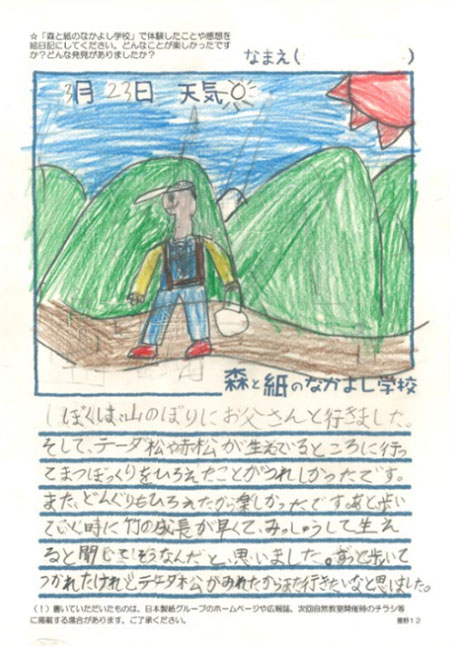 ☆「森と紙のなかよし学校」で体験したことや感想を
絵日記にしてください。どんなことが楽しかったです
か？どんな発見がありましたか？
なまえ( )
3月 23日 天気
森と紙のなかよし学校
ぼくは、山のぼりにお父さんと行きました。
そして、テーダ松や赤松が生えてるところに行っ
てまつぼっくりをひろえたことがうれしかったです。
また、どんぐりもひろえたから楽しかったです。あと歩い
ていく時に竹の成長が早くて、みっしゅうして生え
ると聞いてそうなんだと、思いました。ずっと歩いて
つかれたけれどテーダ松がみれたからまた行きたいなと思いました。
(！) 書いていただいたものは、日本製紙グループのホームページや広報誌、次回自然教室開催時のチラシ等
に掲載する場合があります。ご了承ください。
菅野12